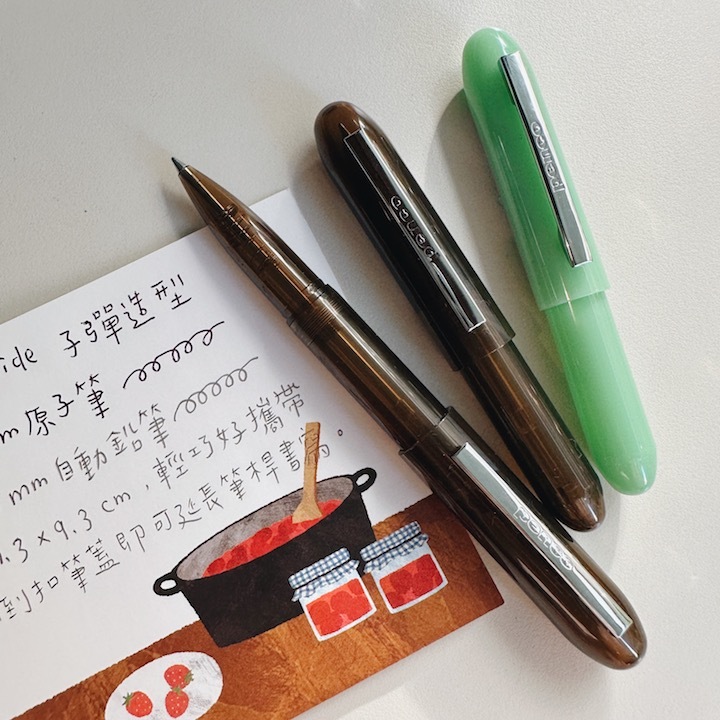 ide 子彈造型
m 原子筆
mm 自動鉛筆
.3 × 9.3 cm，輕巧好攜帶
倒扣筆蓋即可延長筆桿書寫。
penco
penco
penco